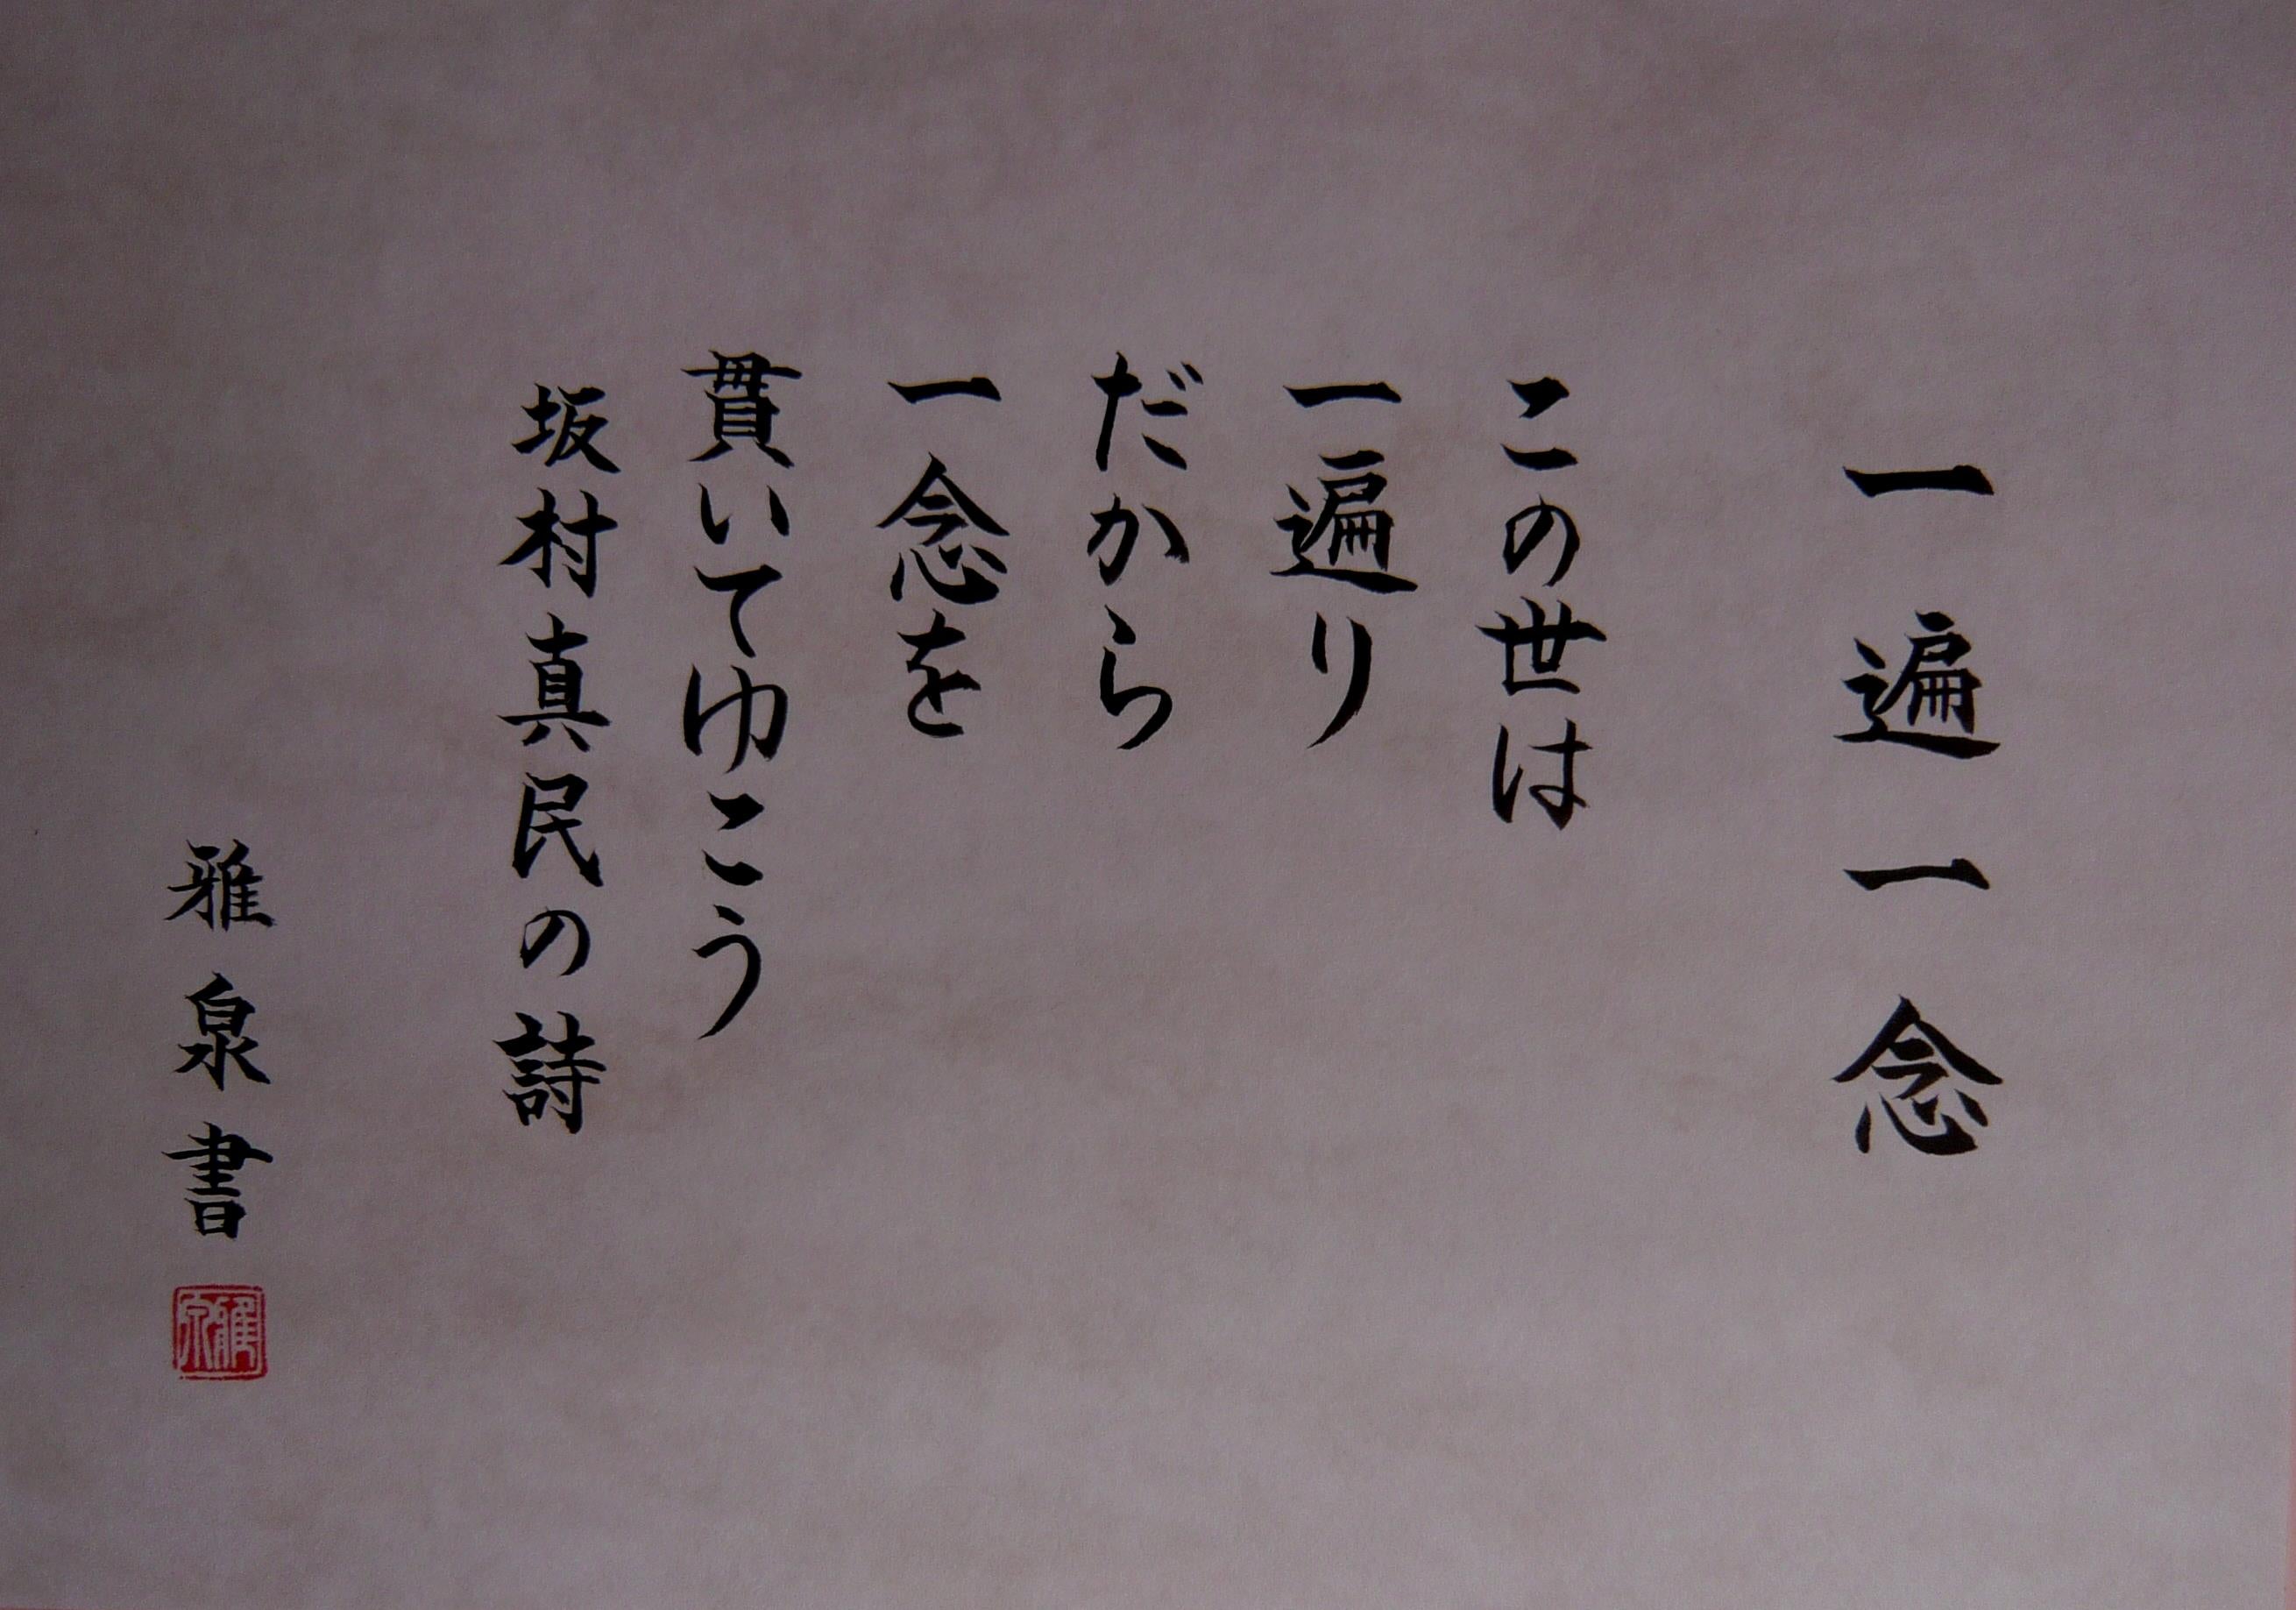 一遍一念
この世は
一遍り
だから
一念を
貫いてゆこう
坂村真民の詩
雅泉書
雅泉